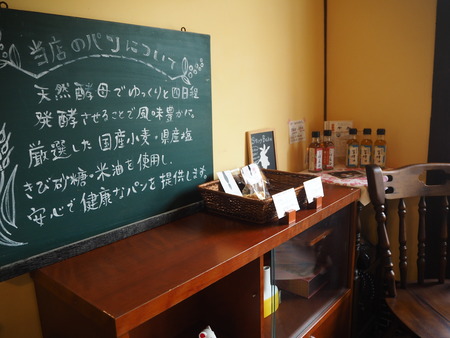 当店のパンについて
天然酵母でゆっくりと四日程
発酵させることで風味豊かに。
厳選した国産小麦・県産塩
きび砂糖・米油を使用し、
安心で健康なパンを提供します。